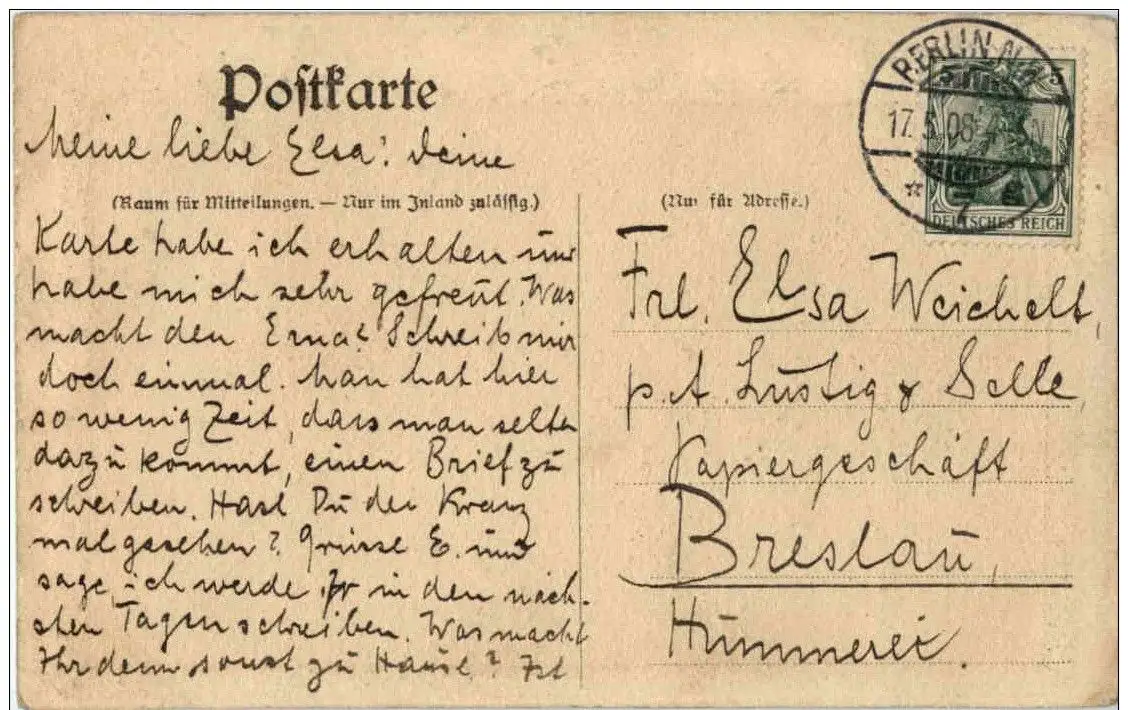 Postkarte
BERLIN N.W.
17.5.08
DEUTSCHES REICH
Meine liebe Elsa! Deine
(Raum für Mitteilungen. — Nur im Inland zulässig.)
Karte habe ich erhalten und
habe mich sehr gefreut. Was
macht den Erna? Schreib mir
doch einmal. Man hat hier
so wenig Zeit, dass man selten
dazu kommt, einen Brief zu
schreiben. Hast Du den Kranz
mal gesehen? Grüsse E. und
sage, ich werde Ihr in den näch-
sten Tagen schreiben. Was macht
Ihr denn sonst zu Hause? Ist
(Nur für Adresse.)
Frl. Elsa Weichelt,
p. A. Lustig & Selle,
Papiergeschäft
Breslau,
Hummerei.